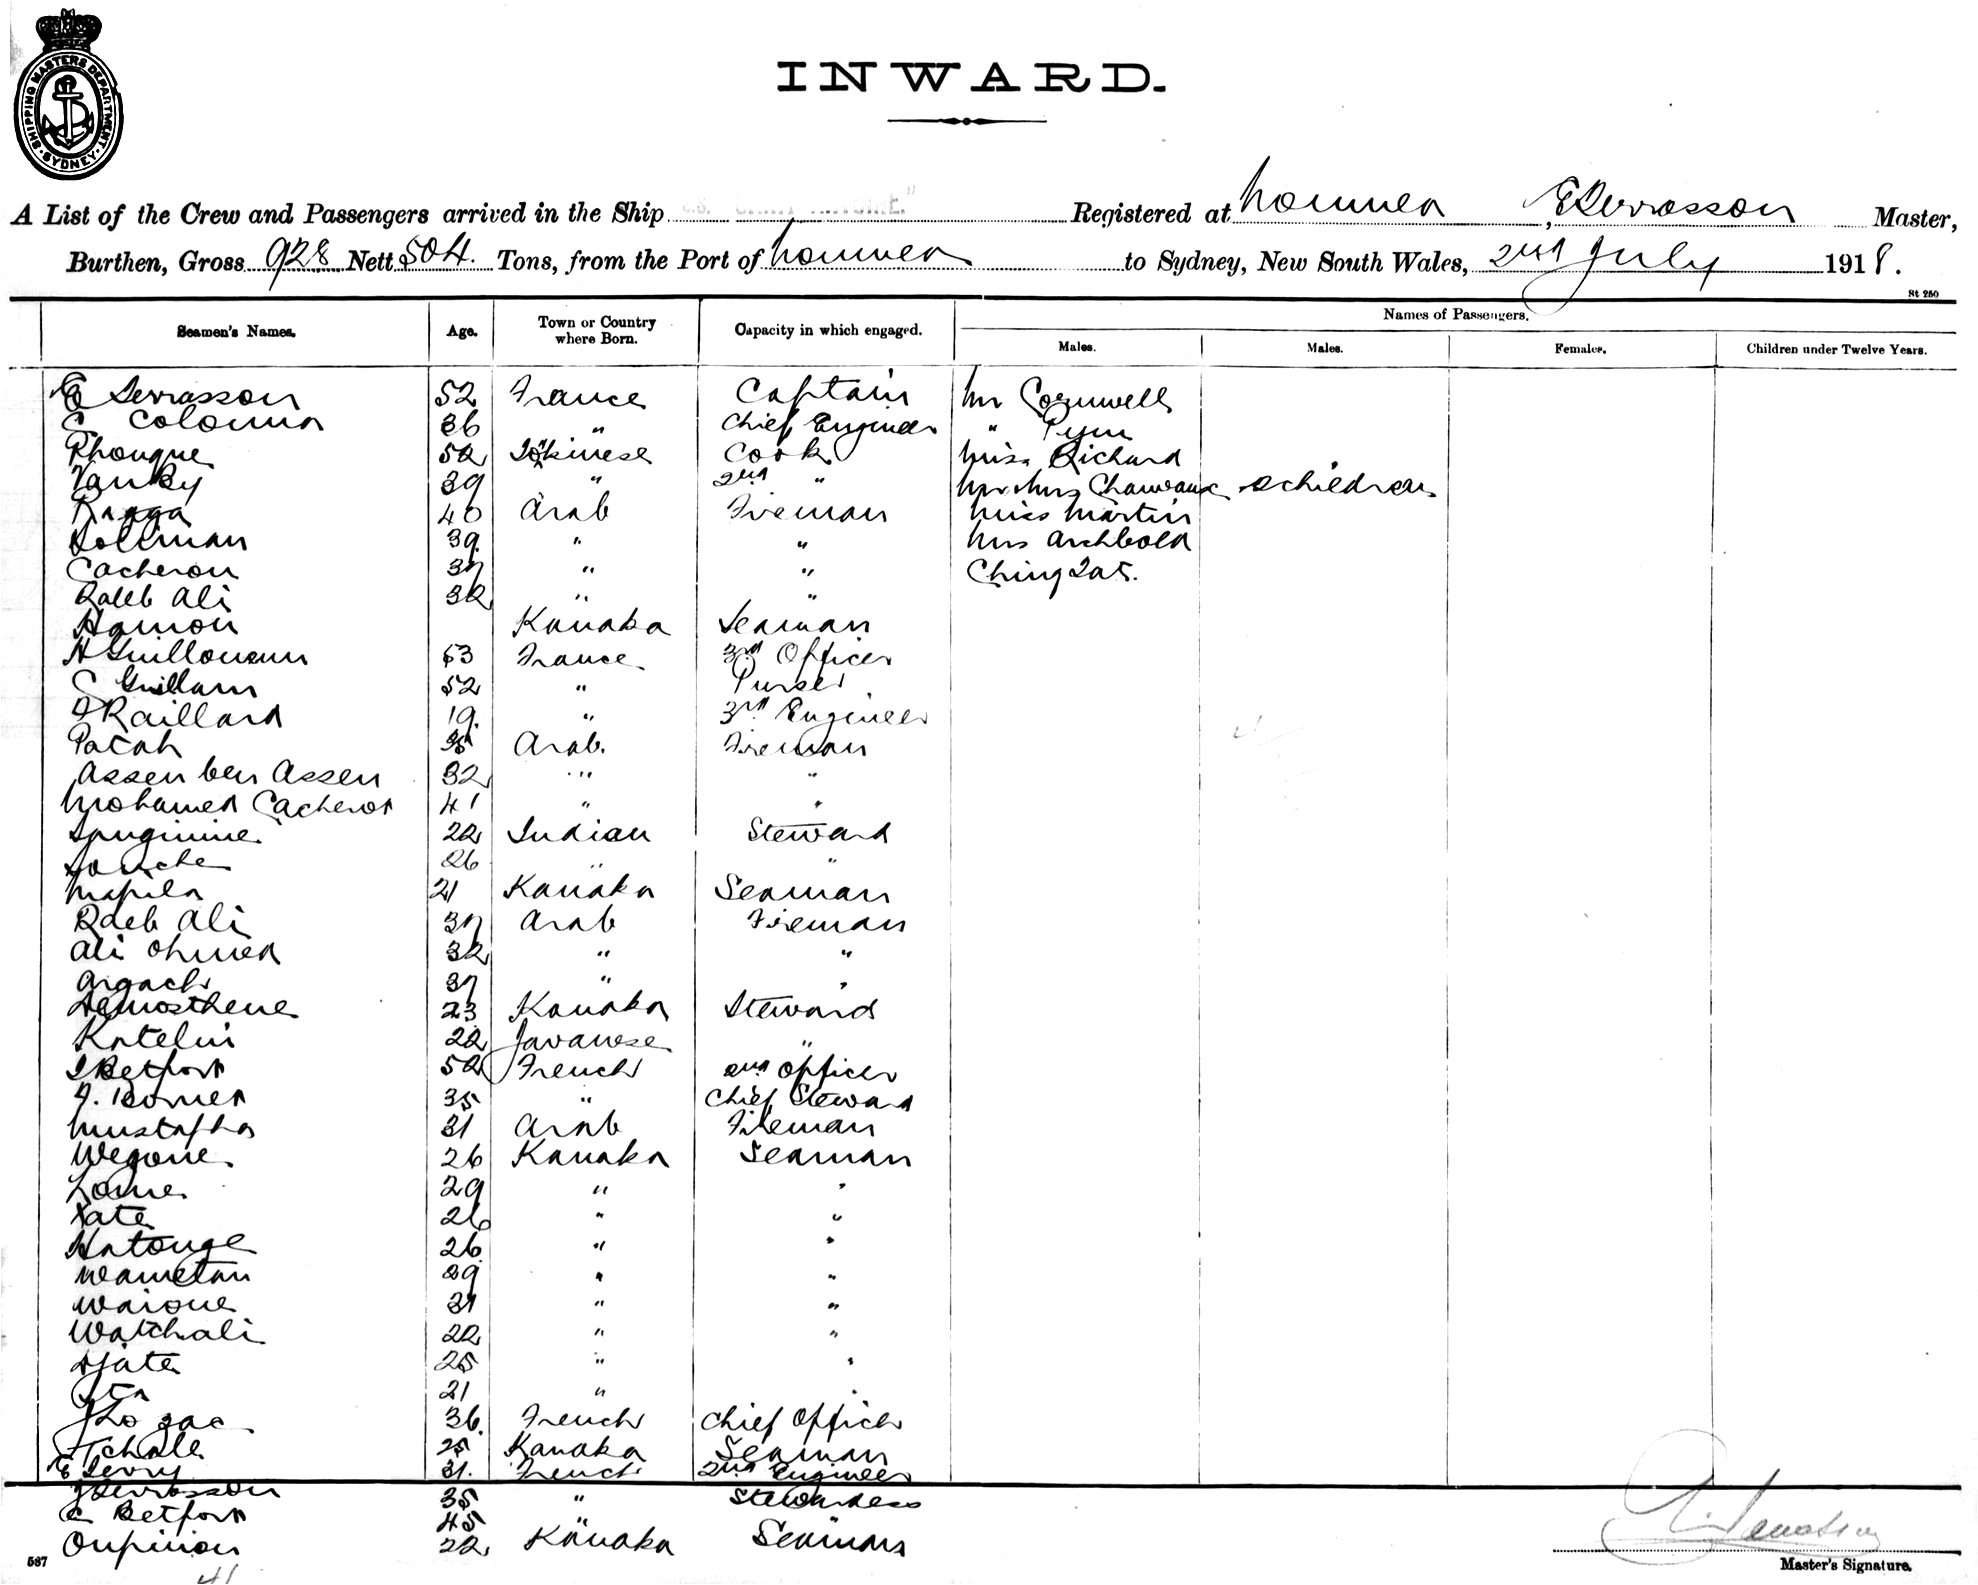 SHIPPING MASTERS DEPARTMENT
SYDNEY
INWARD.
A List of the Crew and Passengers arrived in the Ship Registered at Noumea E Serrasson Master,
Burthen, Gross 928 Nett 504. Tons, from the Port of Noumea to Sydney, New South Wales, 2nd July 1918.
St 250
Seamen's Names. Age. Town or Country where Born. Capacity in which engaged. Names of Passengers.
Males. Males. Females. Children under Twelve Years.
E Serrasson 52 France Captain Mr Cornwell
C Colonna 36 " Chief Engineer " Pym
Phouque 52 Tokinese Cook Miss Richard
VanKy 39 " 2nd " Mr & Mrs 2 children
Ragga 40 Arab Fireman Miss Martin
Soliman 39 " " Mrs Archbold
Cacheron 37 " " Ching Zat.
Raleb Ali 32 " "
Hamon Kanaka Seaman
53 France 3rd Officer
C Guillam 52 " Purser
J Raillard 19 " 3rd Engineer
Patah 35 Arab Fireman
Assen ben Assen 32 " "
Mohamed Cacherot 41 " "
22 Indian Steward
Souche 26 " "
Mapila 21 Kanaka Seaman
Raeb Ali 37 Arab Fireman
Ali Ohmed 32 " "
Argach 37 " "
Demosthene 23 Kanaka Steward
Katelin 22 Javanese "
Betfort 52 French 2nd Officer
J. Bornet 35 " Chief Steward
Mustapha 31 Arab Fireman
Wegone 26 Kanaka Seaman
Lome 29 " "
Xate 26 " "
Hatouge 26 " "
Wametan 29 " "
Waioue 31 " "
Watchali 22 " "
Djate 25 " "
Ita 21 " "
36 French Chief Officer
Tchale 25 Kanaka Seaman
E Serry 31. French 2nd Engineer
J Serrasson 35 " Stewardess
C Betfort 45 "
Oupinion 22 Kanaka Seaman
587
41
Master's Signature.